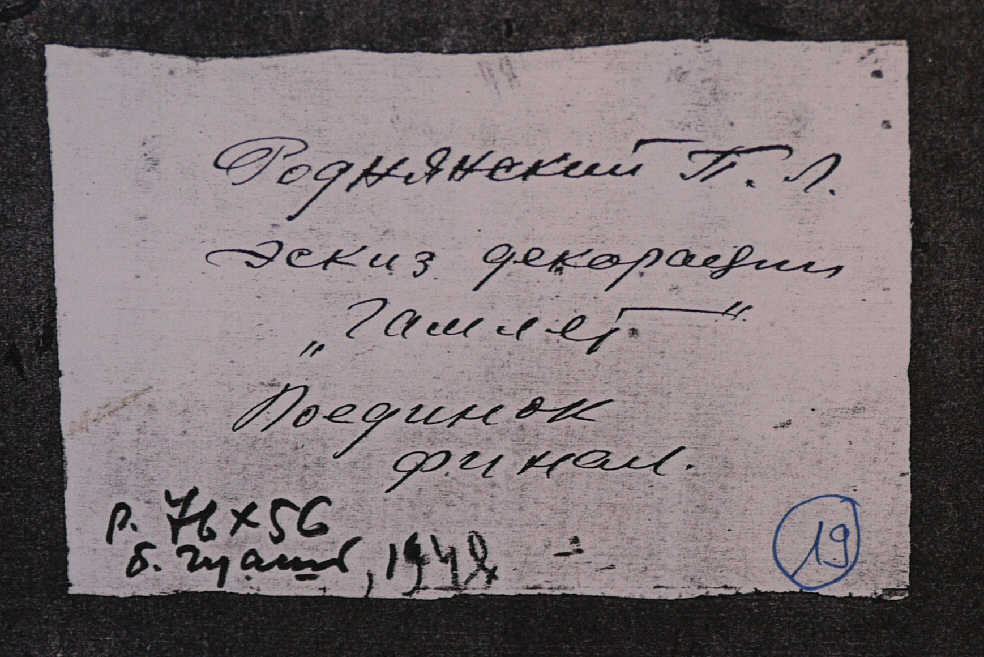 Роднянский П. Л.
эскиз декорации
„Гамлет"
Поединок
финал.
р. 76 x 56
б. гуашь, 1948
19